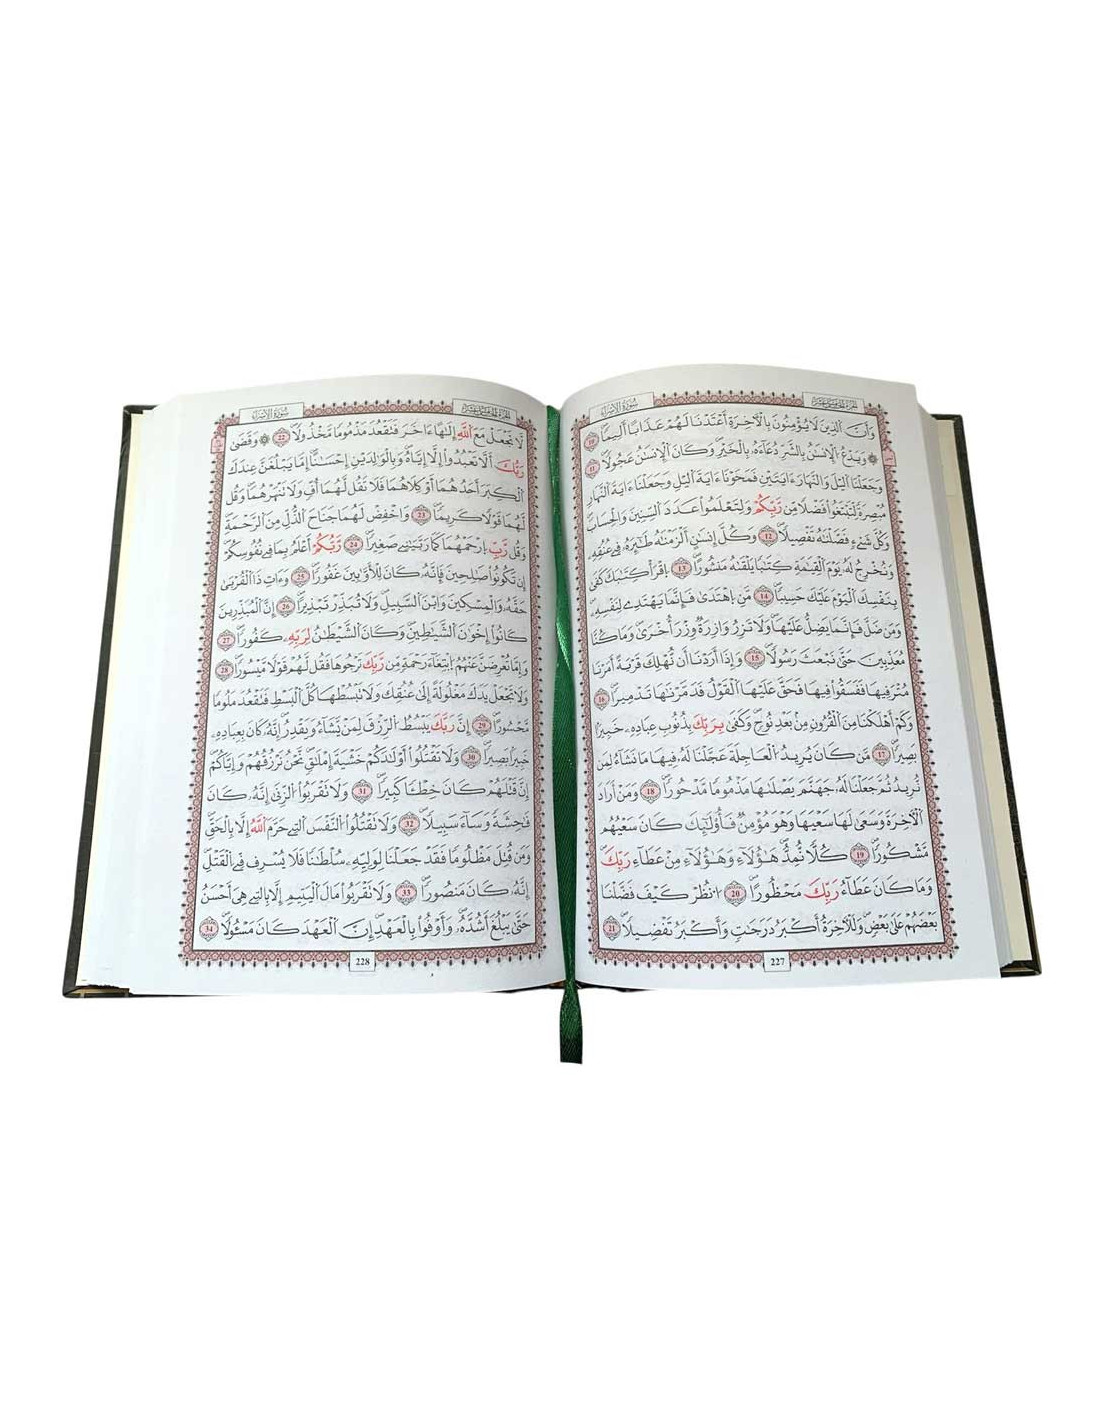 سورة الإسراء
وَأَنَّ اَلذِينَ لَا يُؤْمِنُونَ بِالَاخِرَةِ أَعْتَدْنَا لَهُمْ عَذَابًا اَلِيمًا 10
۞ وَيَدْعُ اُلِانسَٰنُ بِالشَّرِّ دُعَآءَهُۥ بِالْخَيْرِ وَكَانَ اَلِانسَٰنُ عَجُولًا 11
وَجَعَلْنَا اَليْلَ وَالنَّهَارَ ءَايَتَيْنِ فَمَحَوْنَا ءَايَةَ اَليْلِ وَجَعَلْنَا ءَايَةَ اَلنَّهَارِ
مُبْصِرَةً لِّتَبْتَغُوا فَضْلًا مِّن رَّبِّكُمْ وَلِتَعْلَمُوا عَدَدَ اَلسِّنِينَ وَالْحِسَابَ
وَكُلَّ شَيْءٍ فَصَّلْنَٰهُ تَفْصِيلًا 12 وَكُلَّ إِنسَٰنٍ اَلْزَمْنَٰهُ طَٰٓئِرَهُۥ فِي عُنُقِهِۦ
وَنُخْرِجُ لَهُۥ يَوْمَ اَلْقِيَٰمَةِ كِتَٰبًا يَلْقَىٰهُ مَنشُورًا 13 اِقْرَأْ كِتَٰبَكَ كَفَىٰ
بِنَفْسِكَ اَلْيَوْمَ عَلَيْكَ حَسِيبًا 14 مَّنِ اِهْتَدَىٰ فَإِنَّمَا يَهْتَدِي لِنَفْسِهِۦ
وَمَن ضَلَّ فَإِنَّمَا يَضِلُّ عَلَيْهَا وَلَا تَزِرُ وَازِرَةٌ وِزْرَ أُخْرَىٰ وَمَا كُنَّا
مُعَذِّبِينَ حَتَّىٰ نَبْعَثَ رَسُولًا 15 وَإِذَا أَرَدْنَا أَن نُّهْلِكَ قَرْيَةً اَمَرْنَا
مُتْرَفِيهَا فَفَسَقُوا فِيهَا فَحَقَّ عَلَيْهَا اَلْقَوْلُ فَدَمَّرْنَٰهَا تَدْمِيرًا 16
وَكَمَ اَهْلَكْنَا مِنَ اَلْقُرُونِ مِنۢ بَعْدِ نُوحٍ وَكَفَىٰ بِرَبِّكَ بِذُنُوبِ عِبَادِهِۦ خَبِيرًا
بَصِيرًا 17 مَّن كَانَ يُرِيدُ اُلْعَاجِلَةَ عَجَّلْنَا لَهُۥ فِيهَا مَا نَشَآءُ لِمَن
نُّرِيدُ ثُمَّ جَعَلْنَا لَهُۥ جَهَنَّمَ يَصْلَىٰهَا مَذْمُومًا مَّدْحُورًا 18 وَمَنَ اَرَادَ
اَلَاخِرَةَ وَسَعَىٰ لَهَا سَعْيَهَا وَهُوَ مُؤْمِنٌ فَأُوْلَٰٓئِكَ كَانَ سَعْيُهُم
مَّشْكُورًا 19 كُلًّا نُّمِدُّ هَٰٓؤُلَآءِ وَهَٰٓؤُلَآءِ مِنْ عَطَآءِ رَبِّكَ
وَمَا كَانَ عَطَآءُ رَبِّكَ مَحْظُورًا 20 اُنظُرْ كَيْفَ فَضَّلْنَا
بَعْضَهُمْ عَلَىٰ بَعْضٍ وَلَلَاخِرَةُ أَكْبَرُ دَرَجَٰتٍ وَأَكْبَرُ تَفْضِيلًا 21
227
سورة الإسراء
لَّا تَجْعَلْ مَعَ اَللَّهِ إِلَٰهًا ءَاخَرَ فَتَقْعُدَ مَذْمُومًا مَّخْذُولًا 22 ۞ وَقَضَىٰ
رَبُّكَ أَلَّا تَعْبُدُوا إِلَّا إِيَّاهُ وَبِالْوَٰلِدَيْنِ إِحْسَٰنًا إِمَّا يَبْلُغَنَّ عِندَكَ
اَلْكِبَرَ أَحَدُهُمَا أَوْ كِلَاهُمَا فَلَا تَقُل لَّهُمَا أُفٍّ وَلَا تَنْهَرْهُمَا وَقُل
لَّهُمَا قَوْلًا كَرِيمًا 23 وَاخْفِضْ لَهُمَا جَنَاحَ اَلذُّلِّ مِنَ اَلرَّحْمَةِ
وَقُل رَّبِّ اِرْحَمْهُمَا كَمَا رَبَّيَٰنِي صَغِيرًا 24 رَّبُّكُمُ أَعْلَمُ بِمَا فِي نُفُوسِكُمُ
إِن تَكُونُوا صَٰلِحِينَ فَإِنَّهُۥ كَانَ لِلَاوَّٰبِينَ غَفُورًا 25 وَءَاتِ ذَا اَلْقُرْبَىٰ
حَقَّهُۥ وَالْمِسْكِينَ وَابْنَ اَلسَّبِيلِ وَلَا تُبَذِّرْ تَبْذِيرًا 26 إِنَّ اَلْمُبَذِّرِينَ
كَانُوا إِخْوَٰنَ اَلشَّيَٰطِينِ وَكَانَ اَلشَّيْطَٰنُ لِرَبِّهِۦ كَفُورًا 27
وَإِمَّا تُعْرِضَنَّ عَنْهُمُ اُبْتِغَآءَ رَحْمَةٍ مِّن رَّبِّكَ تَرْجُوهَا فَقُل لَّهُمْ قَوْلًا مَّيْسُورًا 28
وَلَا تَجْعَلْ يَدَكَ مَغْلُولَةً إِلَىٰ عُنُقِكَ وَلَا تَبْسُطْهَا كُلَّ اَلْبَسْطِ فَتَقْعُدَ مَلُومًا
مَّحْسُورًا 29 إِنَّ رَبَّكَ يَبْسُطُ اُلرِّزْقَ لِمَنْ يَّشَآءُ وَيَقْدِرُ إِنَّهُۥ كَانَ بِعِبَادِهِۦ
خَبِيرًا بَصِيرًا 30 وَلَا تَقْتُلُوا أَوْلَٰدَكُمْ خَشْيَةَ إِمْلَٰقٍ نَّحْنُ نَرْزُقُهُمْ وَإِيَّاكُمُ
إِنَّ قَتْلَهُمْ كَانَ خِطْـًٔا كَبِيرًا 31 وَلَا تَقْرَبُوا اُلزِّنَىٰ إِنَّهُۥ كَانَ
فَٰحِشَةً وَسَآءَ سَبِيلًا 32 وَلَا تَقْتُلُوا اُلنَّفْسَ اَلتِي حَرَّمَ اَللَّهُ إِلَّا بِالْحَقِّ
وَمَن قُتِلَ مَظْلُومًا فَقَدْ جَعَلْنَا لِوَلِيِّهِۦ سُلْطَٰنًا فَلَا يُسْرِف فِّي اِلْقَتْلِ
إِنَّهُۥ كَانَ مَنصُورًا 33 وَلَا تَقْرَبُوا مَالَ اَلْيَتِيمِ إِلَّا بِالتِي هِيَ أَحْسَنُ
حَتَّىٰ يَبْلُغَ أَشُدَّهُۥ وَأَوْفُوا بِالْعَهْدِ إِنَّ اَلْعَهْدَ كَانَ مَسْـُٔولًا 34
228